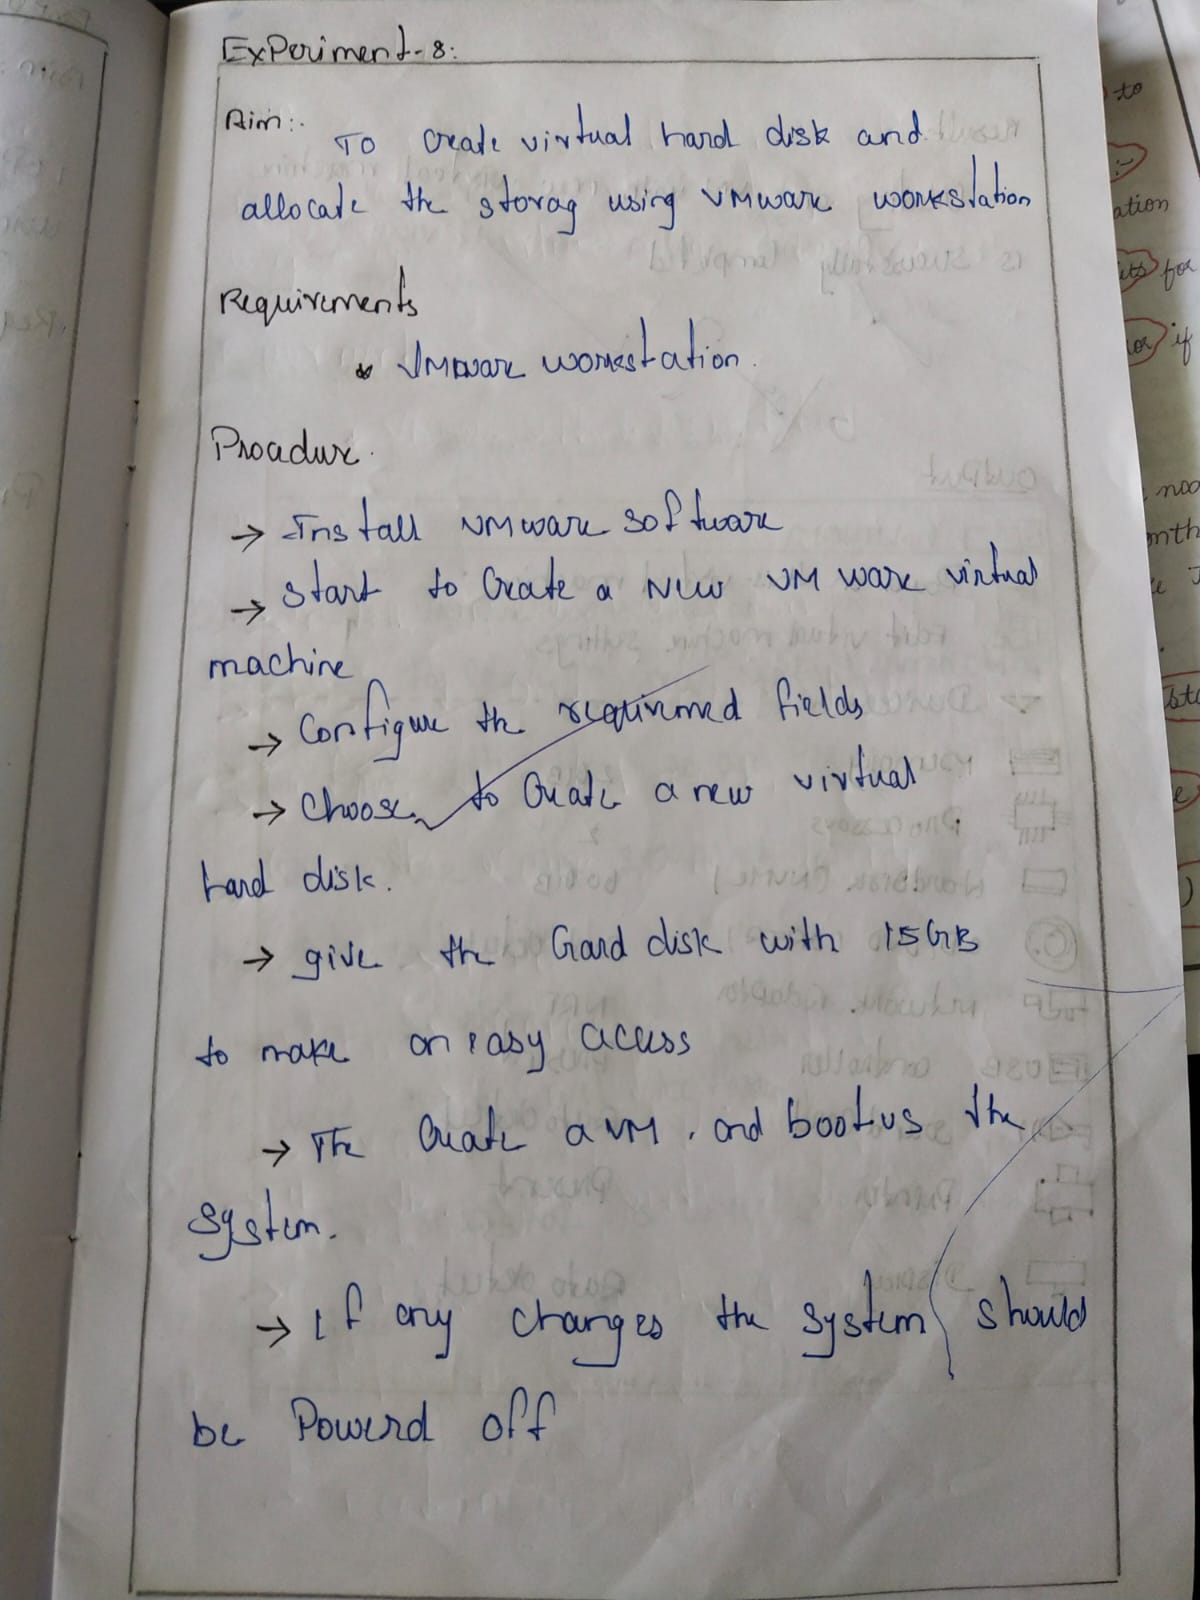 ExPeriment-8:
Aim:-
To create virtual hard disk and
allocate the storag using VMware workstation
Requirements
VMware workstation.
Procadure.
→ Install VMware software
→ start to Create a New VM ware virtual
machine
→ Configure the fields
→ Choose to Create a new virtual
hard disk.
→ give the Gard disk with 15GB
to make on easy acess
→ The Create a VM. and the
system.
→ If any changes the system should
be Powerd off
to
ation
for
if